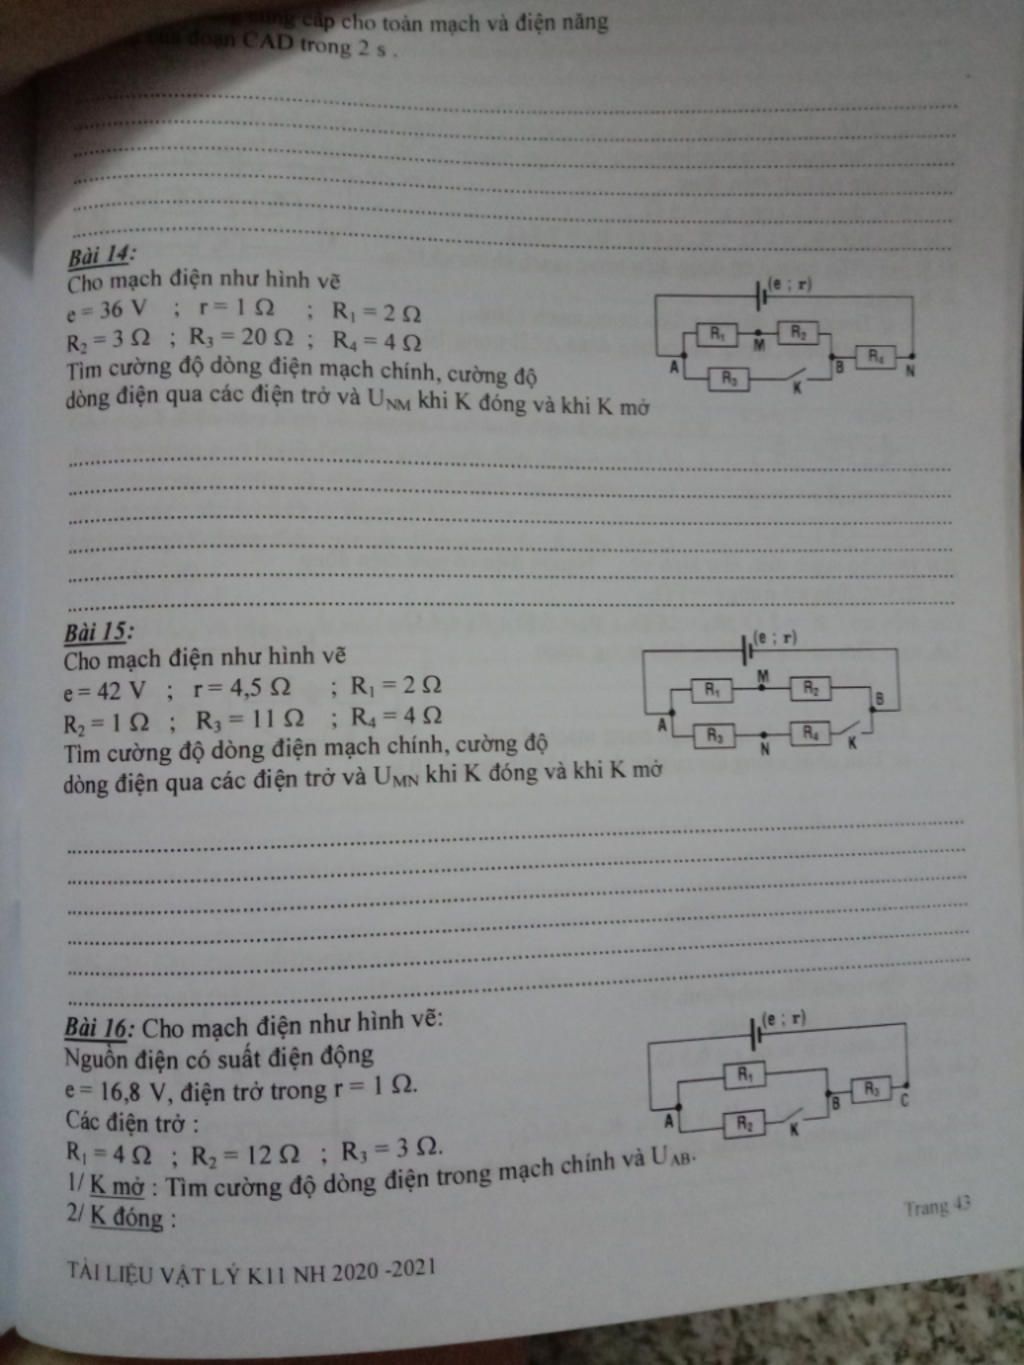 cấp cho toàn mạch và điện năng
đoạn CAD trong 2 s .
Bài 14:
Cho mạch điện như hình vẽ
e = 36 V ; r = 1 Ω ; R₁ = 2 Ω
R₂ = 3 Ω ; R₃ = 20 Ω ; R₄ = 4 Ω
Tìm cường độ dòng điện mạch chính, cường độ
dòng điện qua các điện trở và U_NM khi K đóng và khi K mở
(e ; r)
R₁ M R₂
A R₃ K B R₄ N
Bài 15:
Cho mạch điện như hình vẽ
e = 42 V ; r = 4,5 Ω ; R₁ = 2 Ω
R₂ = 1 Ω ; R₃ = 11 Ω ; R₄ = 4 Ω
Tìm cường độ dòng điện mạch chính, cường độ
dòng điện qua các điện trở và U_MN khi K đóng và khi K mở
(e ; r)
R₁ M R₂ B
A R₃ N R₄ K
Bài 16: Cho mạch điện như hình vẽ:
Nguồn điện có suất điện động
e = 16,8 V, điện trở trong r = 1 Ω.
Các điện trở :
R₁ = 4 Ω ; R₂ = 12 Ω ; R₃ = 3 Ω.
1/ K mở : Tìm cường độ dòng điện trong mạch chính và U_AB.
2/ K đóng :
(e ; r)
R₁
A R₂ K B R₃ C
Trang 43
TÀI LIỆU VẬT LÝ K11 NH 2020 -2021